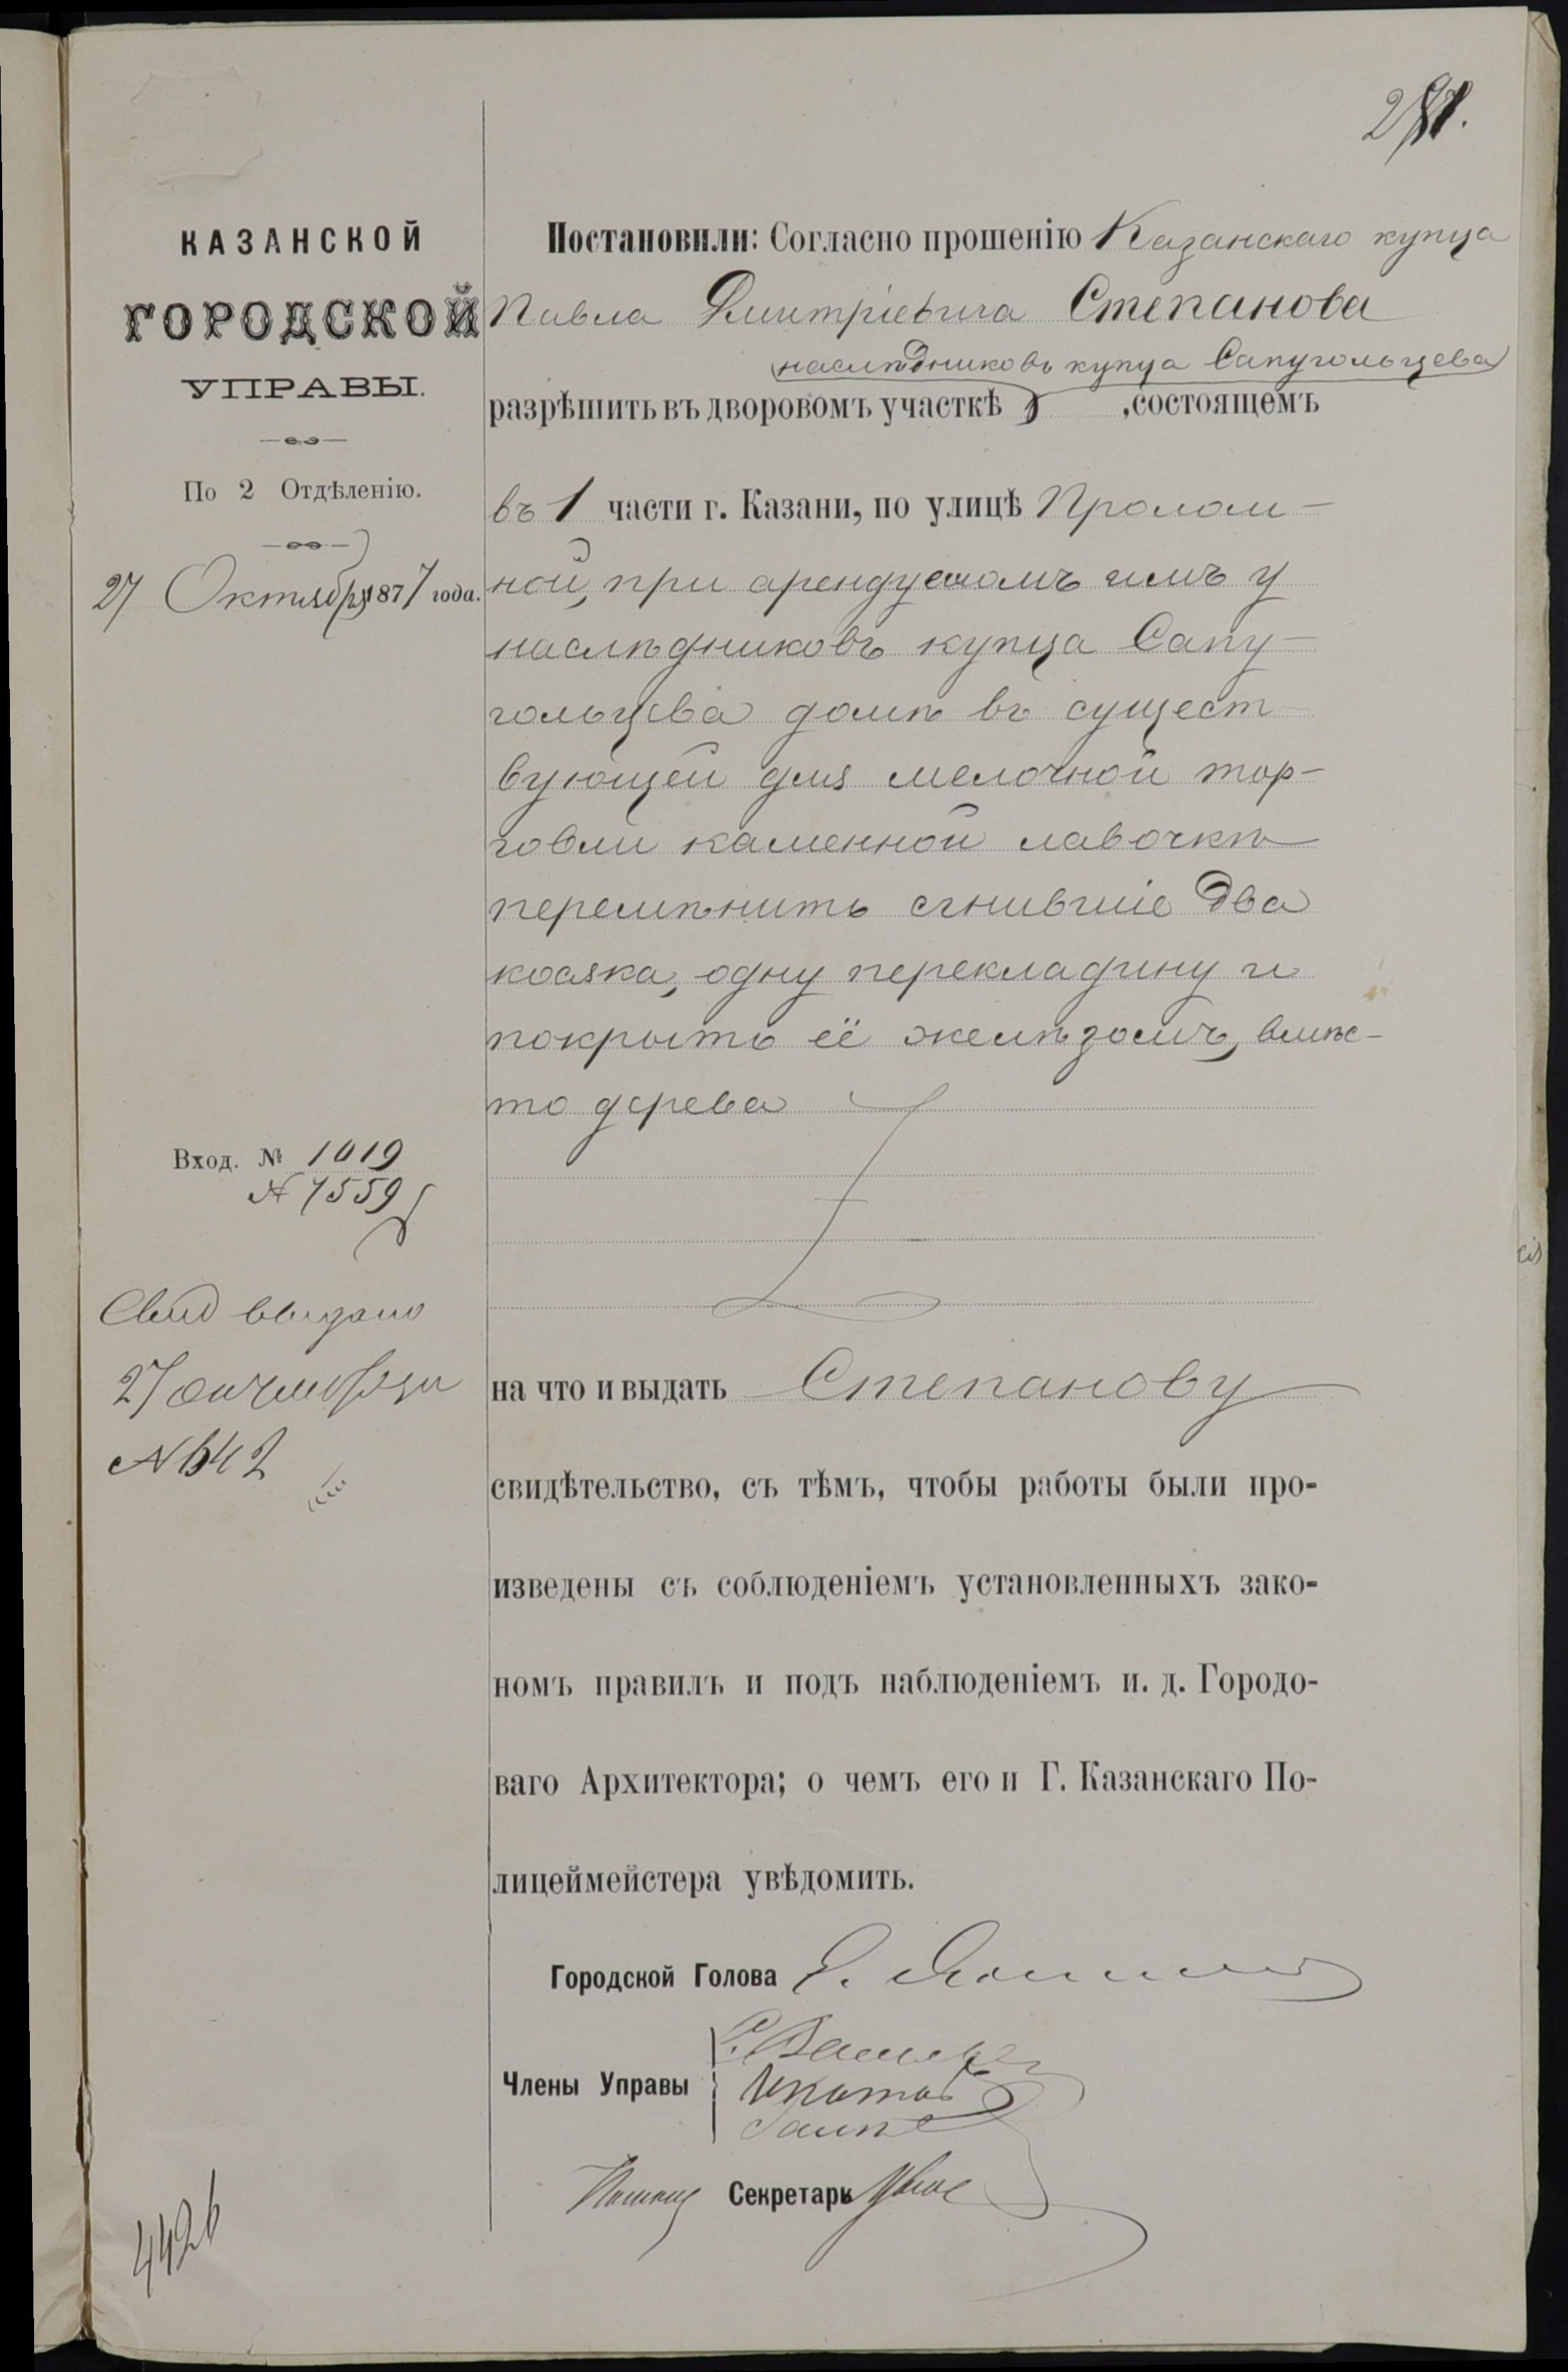 КАЗАНСКОЙ
ГОРОДСКОЙ
УПРАВЫ.
По 2 Отдѣленію.
27 Октября 1877 года.
Вход. № 1019
№ 7559
Свид выдано
27 октября
№ 642
4426
Постановили: Согласно прошенію Казанскаго купца
Павла Дмитріевича Степанова
наслѣдниковъ купца Сапугольцева
разрѣшить въ дворовомъ участкѣ ,состоящемъ
въ 1 части г. Казани, по улицѣ Пролом-
ной, при арендуемомъ имъ у
наслѣдниковъ купца Сапу-
гольцева домѣ въ сущест-
вующей для мелочной тор-
говли каменной лавочкѣ
перемѣнить сгнившіе два
косяка, одну перекладину и
покрыть её желѣзомъ, вмѣс-
то дерева
на что и выдать Степанову
свидѣтельство, съ тѣмъ, чтобы работы были про-
изведены съ соблюденіемъ установленныхъ зако-
номъ правилъ и подъ наблюденіемъ и. д. Городо-
ваго Архитектора; о чемъ его и Г. Казанскаго По-
лицеймейстера увѣдомить.
Городской Голова
Члены Управы
Секретарь